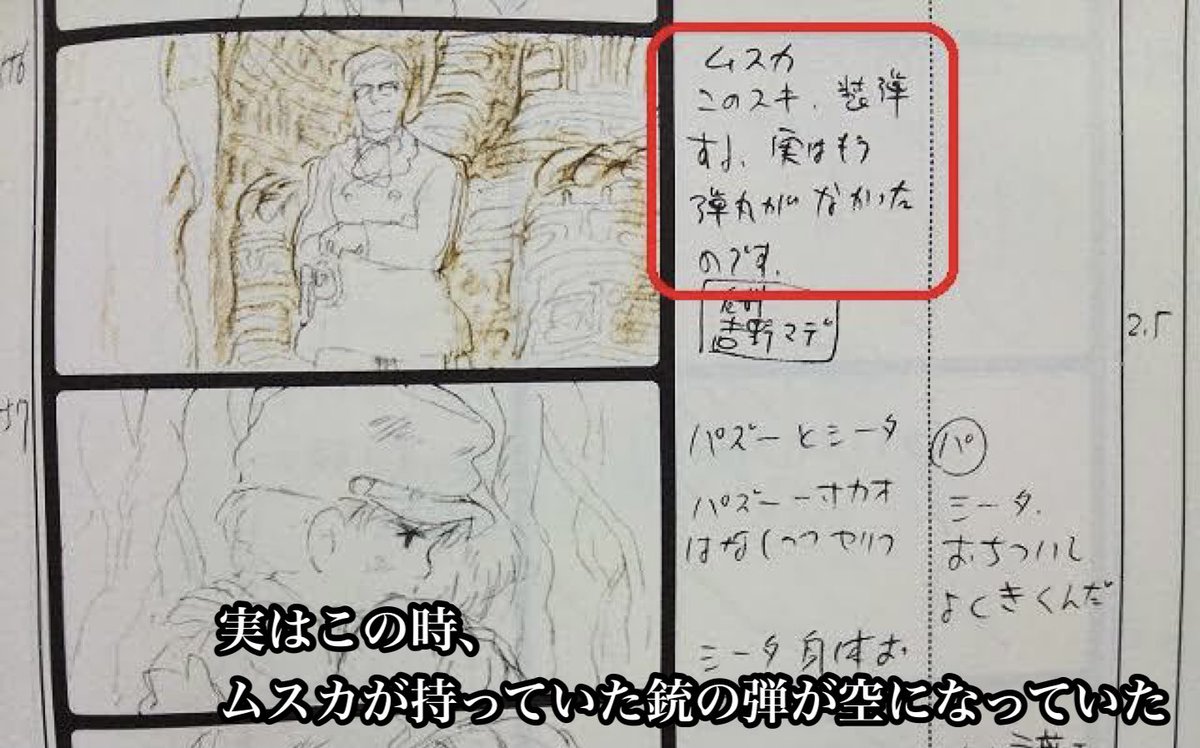 ムスカ
このスキ、装弾
する、実はもう
弾丸がなかった
のです。
吉野マデ
2.5
パズーとシータ
パズー
はなしつつ
シータ身体お
パ
シータ、
おちついて
よくきくんだ
実はこの時、
ムスカが持っていた銃の弾が空になっていた